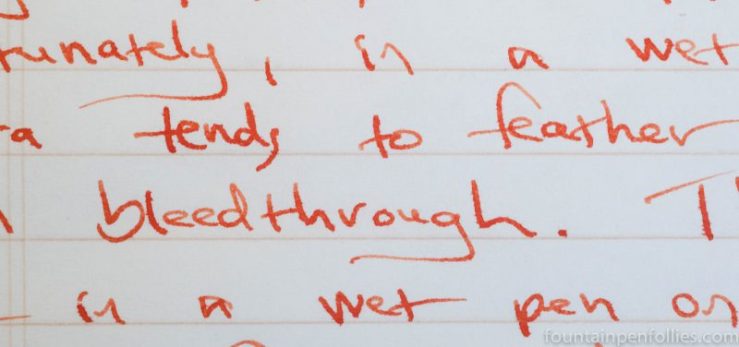 tunately, in a wet
a tends to feather
bleedthrough. T
in a wet pen on
fountainpenfollies.com